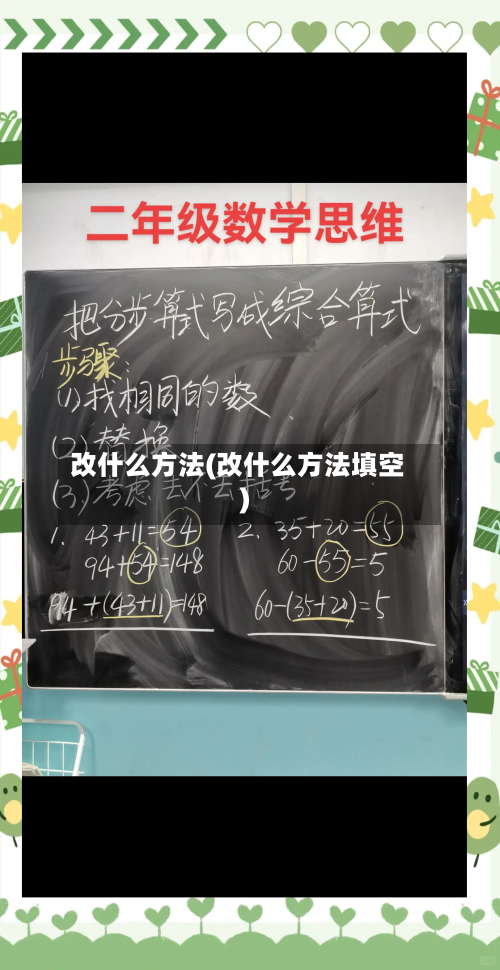 二年级数学思维
把分步算式写成综合算式
步骤:
(1)找相同的数
(2)替换
改什么方法(改什么方法填空
)
(3)考虑丢不丢括号
1. 43+11=54
94+54=148
94+(43+11)=148
2. 35+20=55
60-55=5
60-(35+20)=5